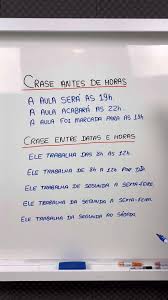 CRASE ANTES DE HORAS
A AULA SERÁ ÀS 19h
A AULA ACABARÁ ÀS 22h.
A AULA FOI MARCADA PARA AS 19h
CRASE ENTRE DATAS E HORAS
ELE TRABALHA DAS 8h ÀS 12h.
ELE TRABALHA DE 8h A 12h POR DIA.
ELE TRABALHA DE SEGUNDA A SEXTA-FEIRA
ELE TRABALHA DA SEGUNDA À SEXTA-FEIRA.
ELE TRABALHA DA SEGUNDA AO SÁBADO.